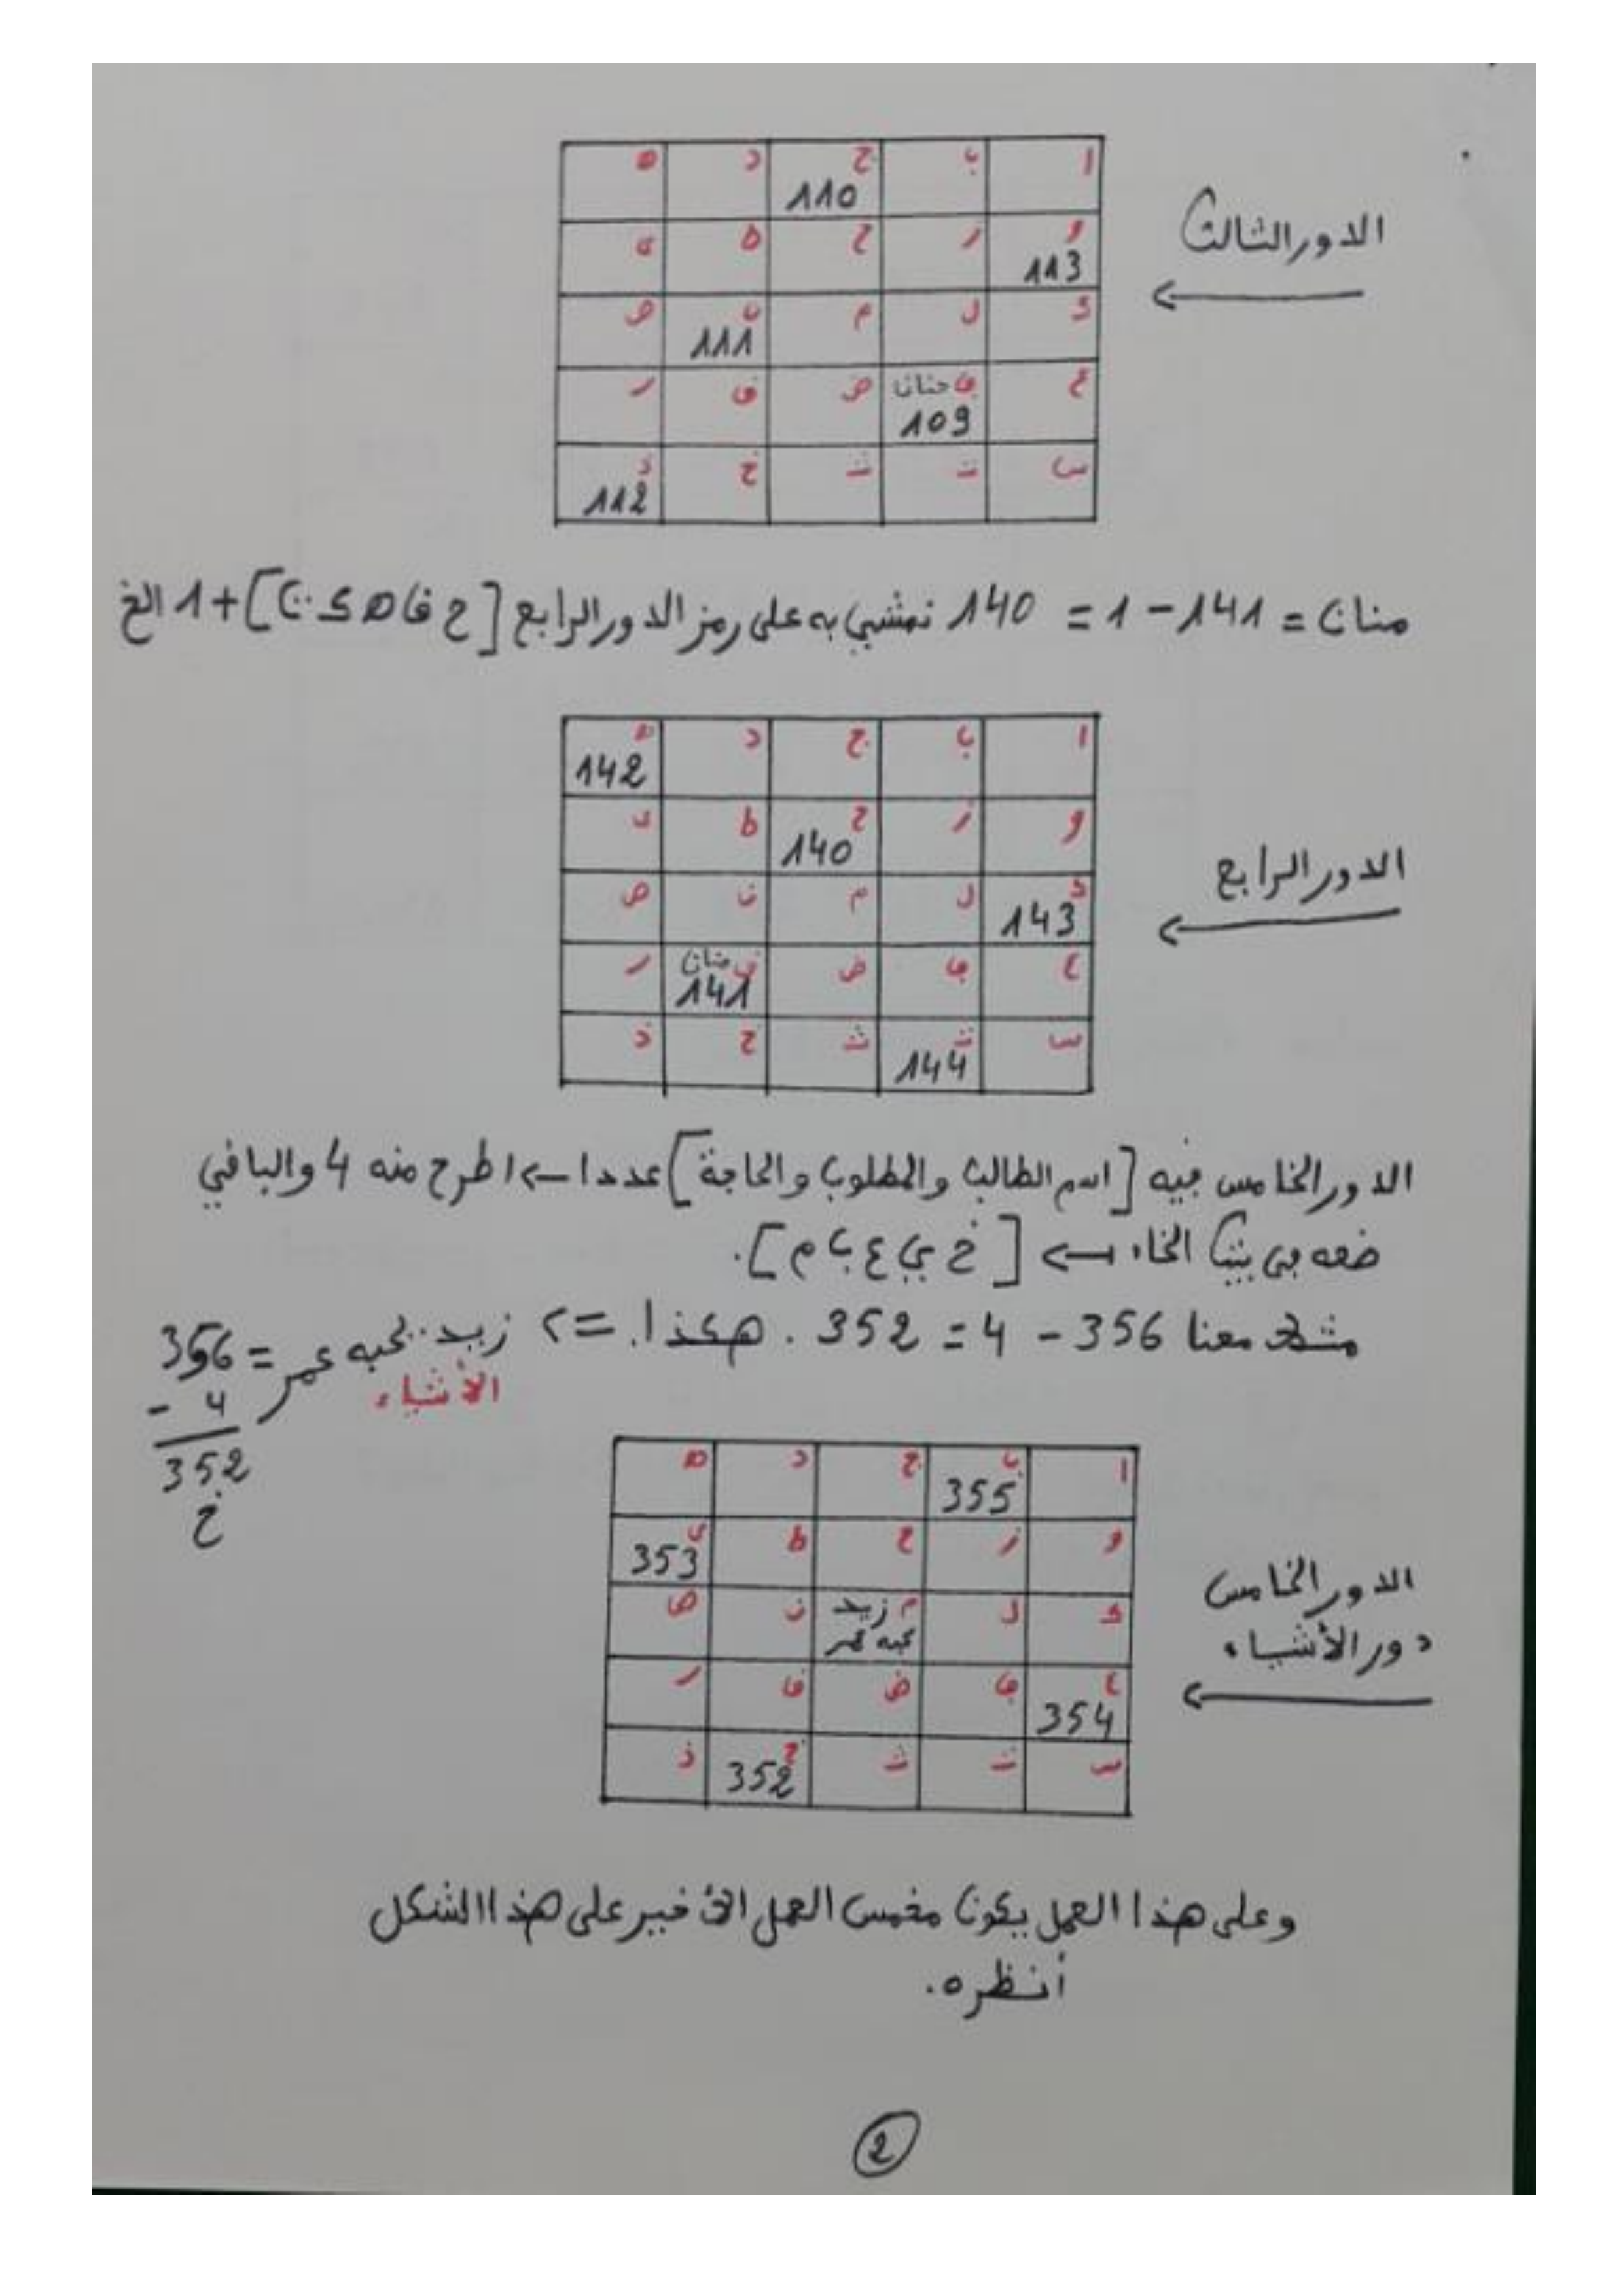 الدور الثالث
ا ب ج 110 د ه
و 113 ز ح ط ي
ك ل م ن 111 ص
ع ف حنان 109 ض ق ر
س ت ث خ ذ 112
منان = 141 - 1 = 140 نمشي به على رمز الدور الرابع [ح ق ه ك ت] +1 الخ
الدور الرابع
ا ب ج د ه 142
و ز ح 140 ط ي
ك 143 ل م ن ص
ع ف ض ق منان 141 ر
س ت 144 ث خ ذ
الدور الخامس فيه [اسم الطالب والمطلوب والحاجة] عددا ← اطرح منه 4 والباقي
ضعه في بيت الخاء ← [خ ي ع ب م].
معنا 356 - 4 = 352 . هكذا. => زيد يحبه عمر = 356
الأشياء
- 4
352
خ
الدور الخامس
دور الأشياء
ا ب 355 ج د ه
و ز ح ط ي 353
ك ل م زيد يحبه عمر ن ص
ع 354 ف ض ق ر
س ت ث خ 352 ذ
وعلى هذا العمل يكون مخمس العمل الأخير على هذا الشكل
أنظره.
2